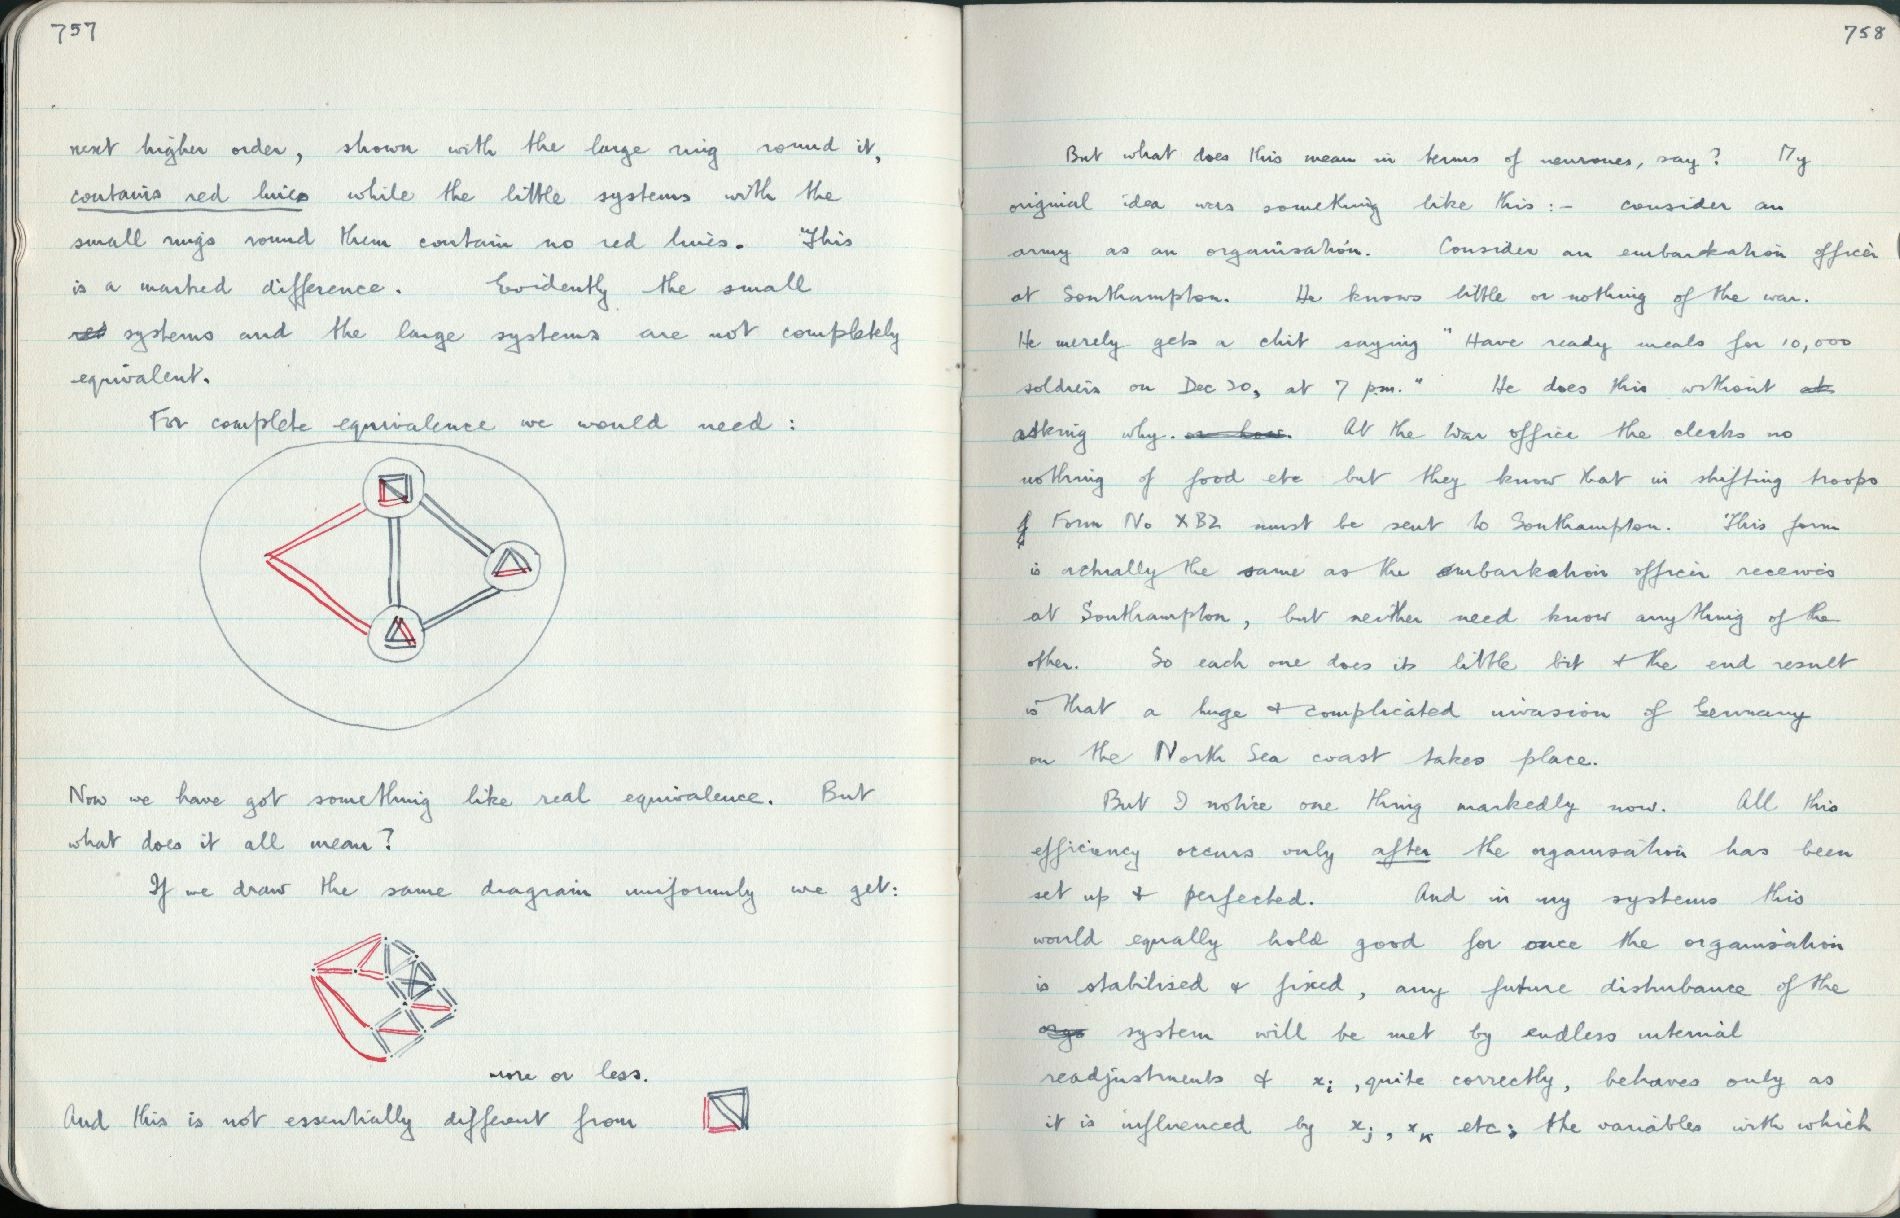 757
next higher order, shown with the large ring round it,
contains red lines while the little systems with the
small rings round them contain no red lines. This
is a marked difference. Evidently the small
red systems and the large systems are not completely
equivalent.
For complete equivalence we would need:
Now we have got something like real equivalence. But
what does it all mean?
If we draw the same diagram uniformly we get:
more or less.
And this is not essentially different from
758
But what does this mean in terms of neurones, say? My
original idea was something like this:- consider an
army as an organisation. Consider an embarkation officer
at Southampton. He knows little or nothing of the war.
He merely gets a chit saying "Have ready meals for 10,000
soldiers on Dec 20, at 7 p.m." He does this without
asking why. or how. At the War office the clerks no
nothing of food etc but they know that in shifting troops
Form No XB2 must be sent to Southampton. This form
is actually the same as the embarkation officer receives
at Southampton, but neither need know anything of the
other. So each one does its little bit & the end result
is that a huge & complicated invasion of Germany
on the North Sea coast takes place.
But I notice one thing markedly now. All this
efficiency occurs only after the organisation has been
set up & perfected. And in my systems this
would equally hold good for once the organisation
is stabilised & fixed, any future disturbance of the
orgs system will be met by endless internal
readjustments & xi, quite correctly, behaves only as
it is influenced by xj, xk etc; the variables with which